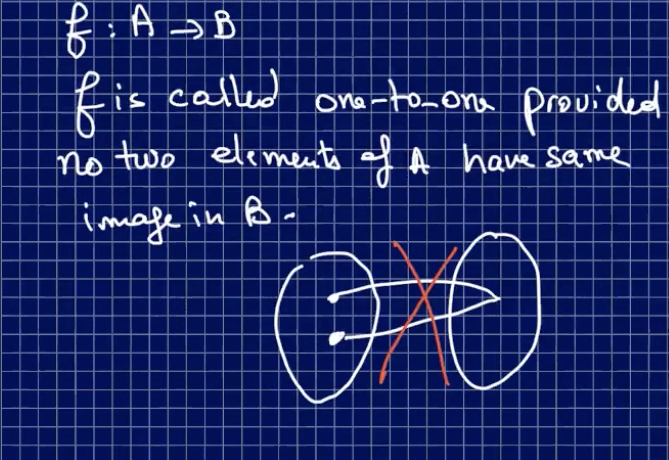 f : A → B
f is called one-to-one provided
no two elements of A have same
image in B.